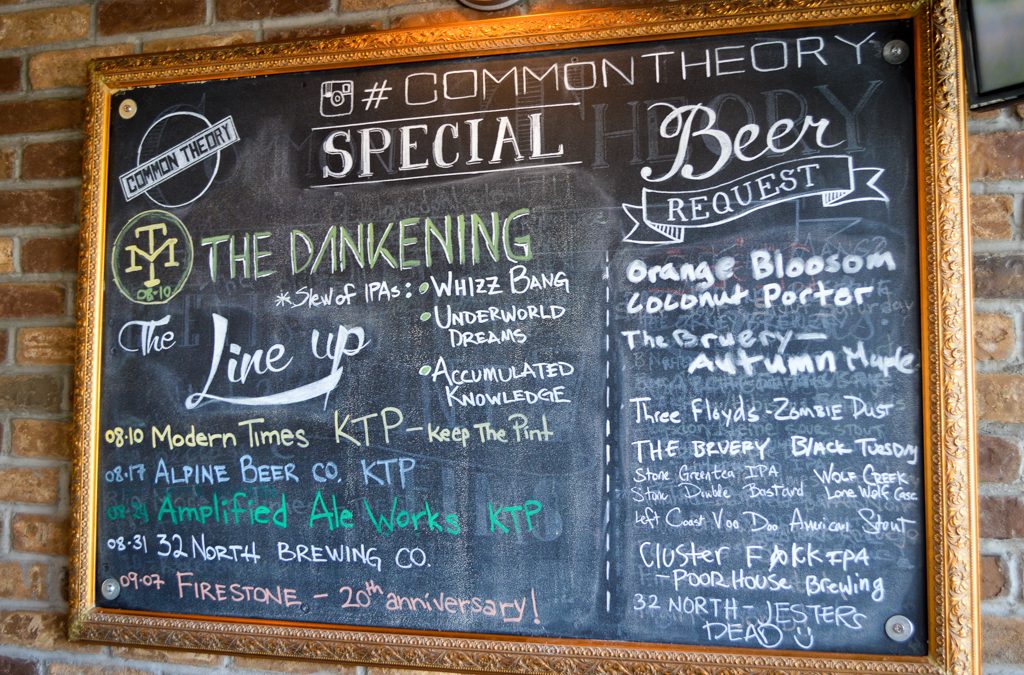 #COMMONTHEORY
COMMON THEORY
SPECIAL
TM
08-10
THE DANKENING
*Slew of IPAs:
WHIZZ BANG
UNDERWORLD
DREAMS
ACCUMULATED
KNOWLEDGE
The Line up
08-10 Modern Times KTP-Keep The Pint
08-17 ALPINE BEER CO. KTP
08-24 Amplified Ale Works KTP
08-31 32 NORTH BREWING CO.
09-07 FIRESTONE - 20th anniversary!
Beer
REQUEST
Orange Bloosom
Coconut Porter
The Bruery-
Autumn Maple
Three Floyds-Zombie Dust
THE BRUERY BLACK TUESDAY
Stone Greentea IPA
Stone Double Bastard
WOLF CREEK
Lone Wolf Casc.
Left Coast Voo Doo American Stout
Cluster F*kk IPA
-POOR HOUSE Brewing
32 NORTH-JESTERS
DEAD